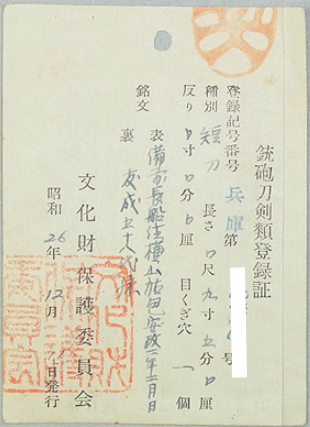 銃砲刀剣類登録証
登録記号番号 兵庫第 号
種別 短刀 長さ 口尺九寸五分口厘
反り 口寸口分口厘 目くぎ穴 一個
銘文 表 備前長船住横山祐包安政二年二月日
裏 友成五十八代孫
昭和26年12月 日発行
文化財保護委員会